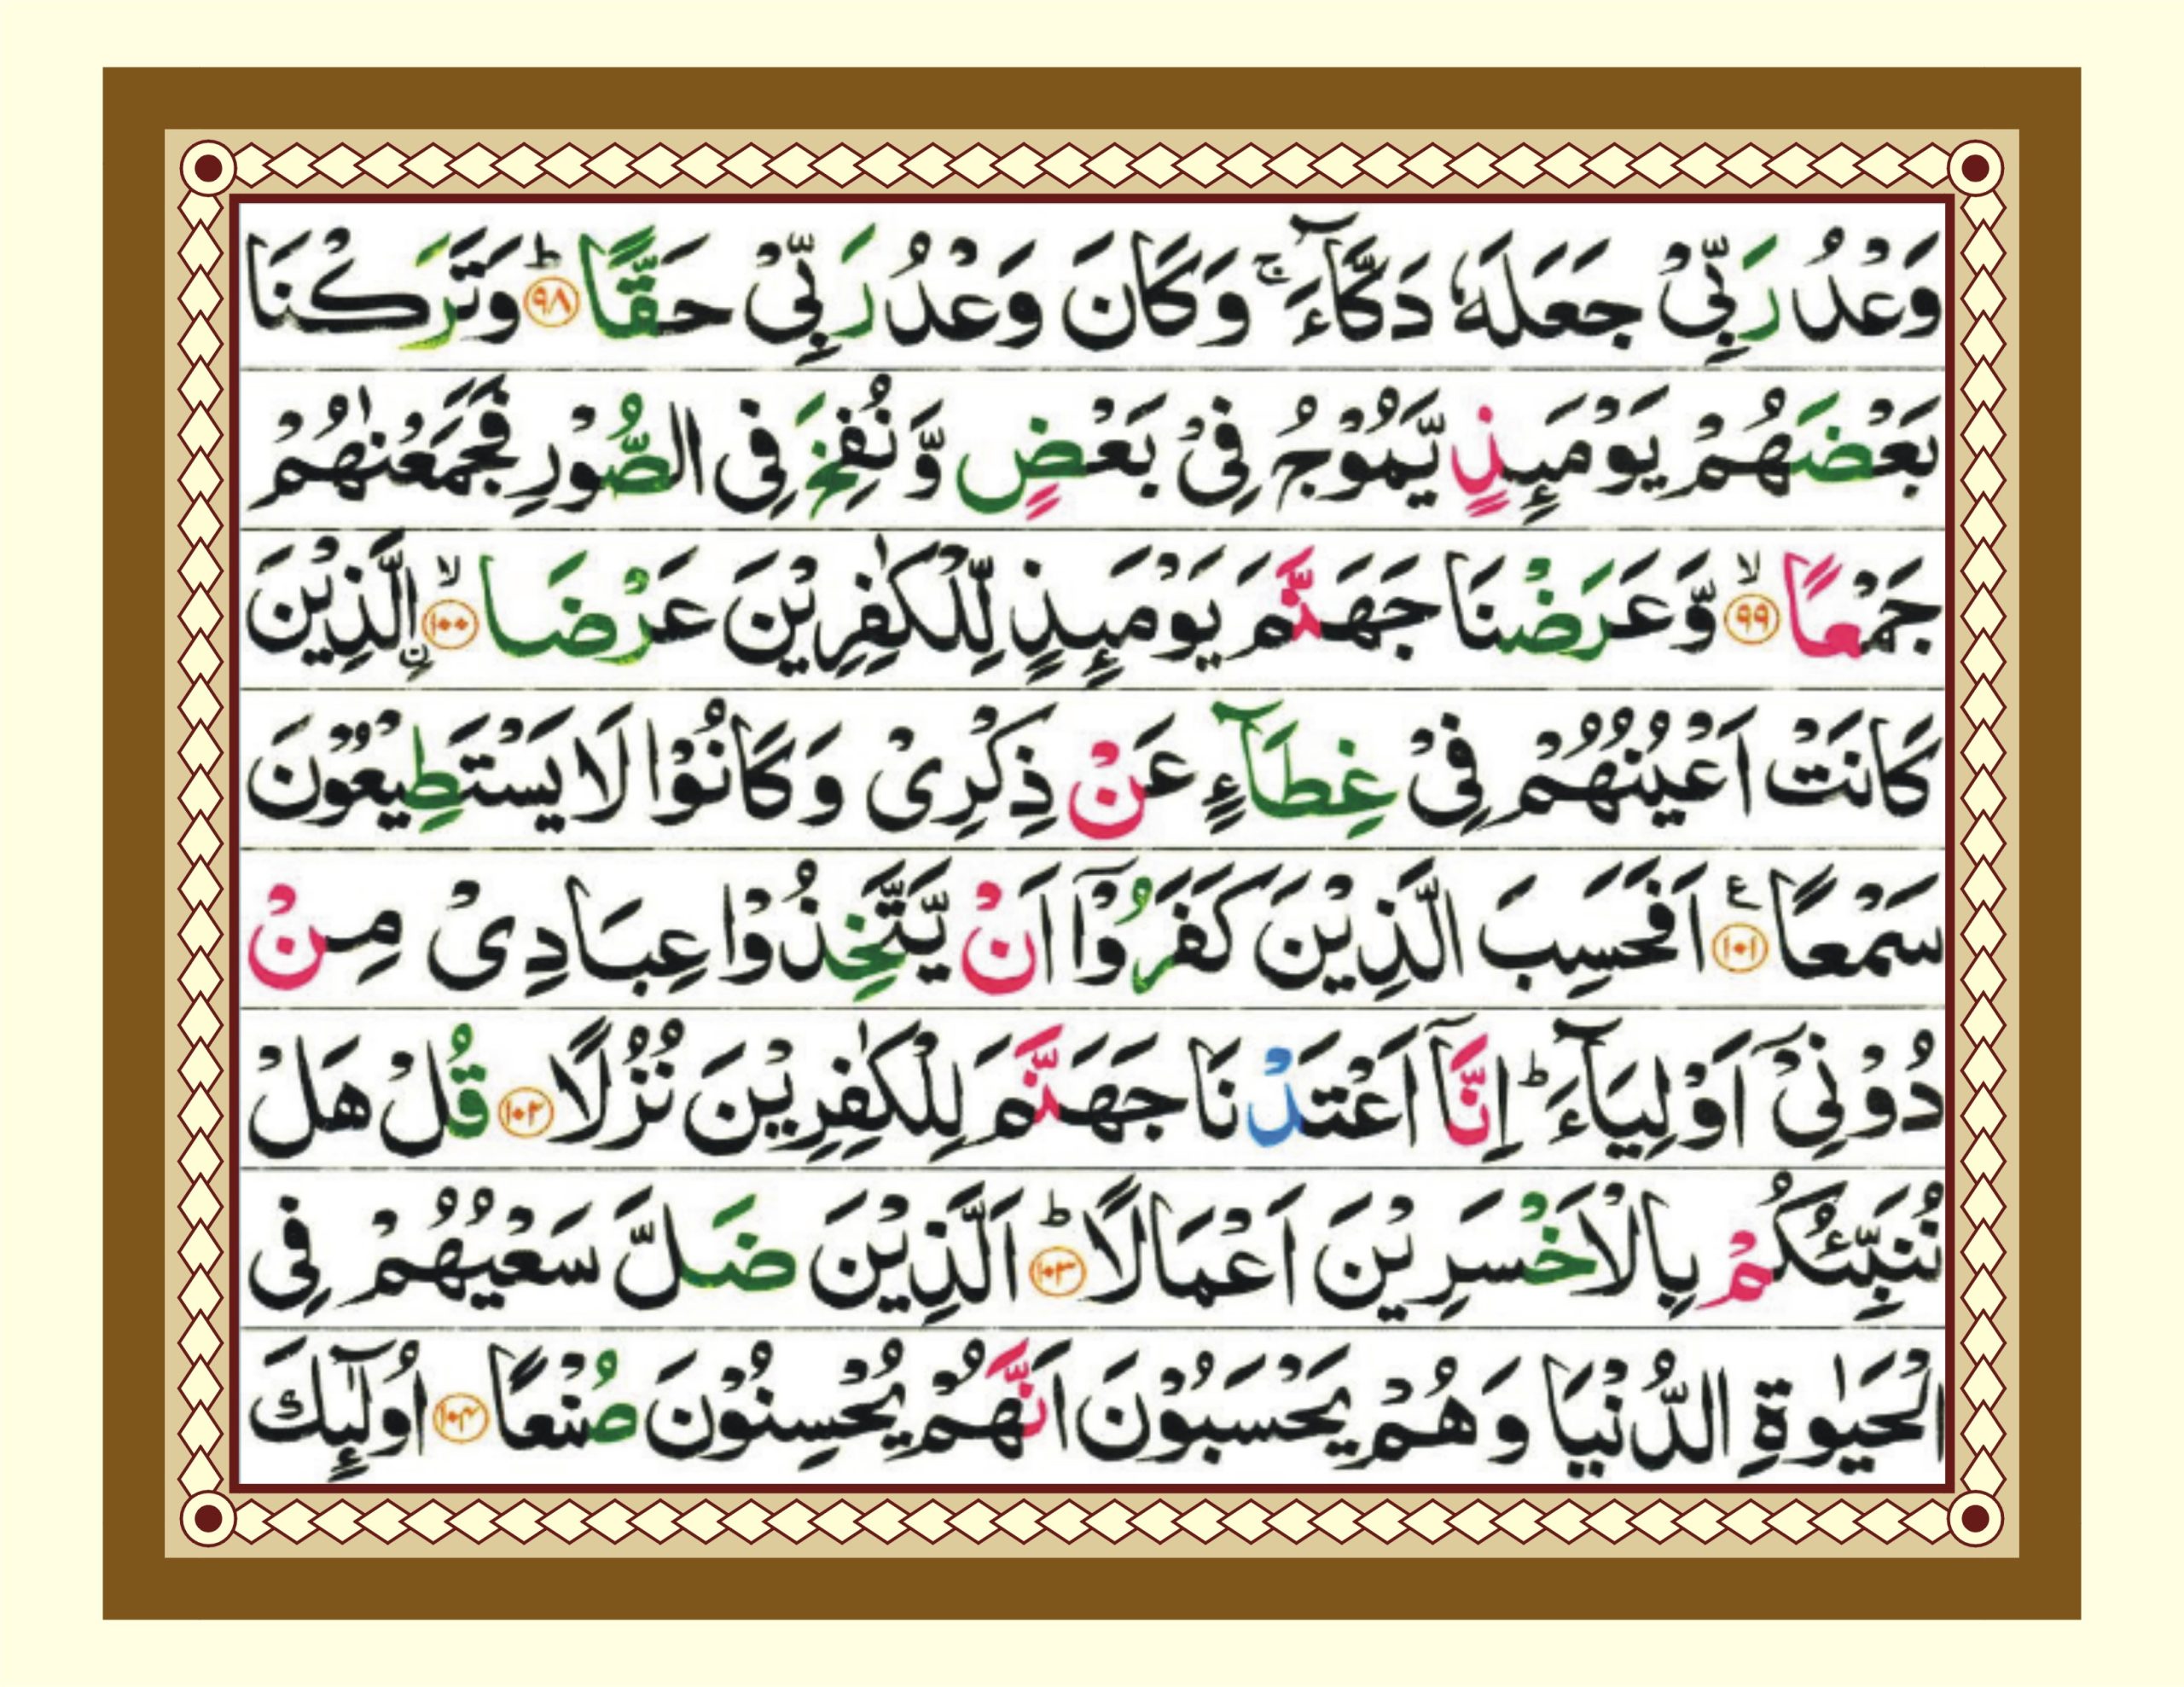 وَعْدُ رَبِّیْ جَعَلَهٗ دَكَّآءَ ۚ وَكَانَ وَعْدُ رَبِّیْ حَقًّا ؕ ﴿۹۸﴾ وَتَرَكْنَا
بَعْضَهُمْ یَوْمَىِٕذٍ یَّمُوْجُ فِیْ بَعْضٍ وَّ نُفِخَ فِی الصُّوْرِ فَجَمَعْنٰهُمْ
جَمْعًا ۙ ﴿۹۹﴾ وَّعَرَضْنَا جَهَنَّمَ یَوْمَىِٕذٍ لِّلْكٰفِرِیْنَ عَرْضَا ۙ ﴿۱۰۰﴾ ن ِالَّذِیْنَ
كَانَتْ اَعْیُنُهُمْ فِیْ غِطَآءٍ عَنْ ذِكْرِیْ وَكَانُوْا لَا یَسْتَطِیعُوْنَ
سَمْعًا ۠ ﴿۱۰۱﴾ ع اَفَحَسِبَ الَّذِیْنَ كَفَرُوْۤا اَنْ یَّتَّخِذُوْا عِبَادِیْ مِنْ
دُوْنِیْۤ اَوْلِیَآءَ ؕ اِنَّاۤ اَعْتَدْنَا جَهَنَّمَ لِلْكٰفِرِیْنَ نُزُلًا ﴿۱۰۲﴾ قُلْ هَلْ
نُنَبِّئُكُمْ بِالْاَخْسَرِیْنَ اَعْمَالًا ؕ ﴿۱۰۳﴾ اَلَّذِیْنَ ضَلَّ سَعْیُهُمْ فِی
الْحَیٰوةِ الدُّنْیَا وَهُمْ یَحْسَبُوْنَ اَنَّهُمْ یُحْسِنُوْنَ صُنْعًا ﴿۱۰۴﴾ اُولٰٓىِٕكَ